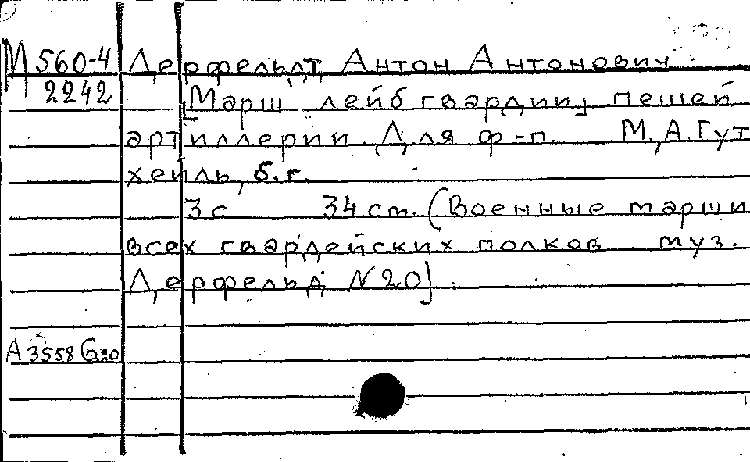 М 560-4 Дерфельдт Антон Антонович.
2242 [Марш лейб гвардии] пешей
артиллерии. Для ф-п М., А. Гут
хейль, б.г.
3 с 34 см. (Военные марши
всех гвардейских полков муз.
Дерфельд №20)
А 3558